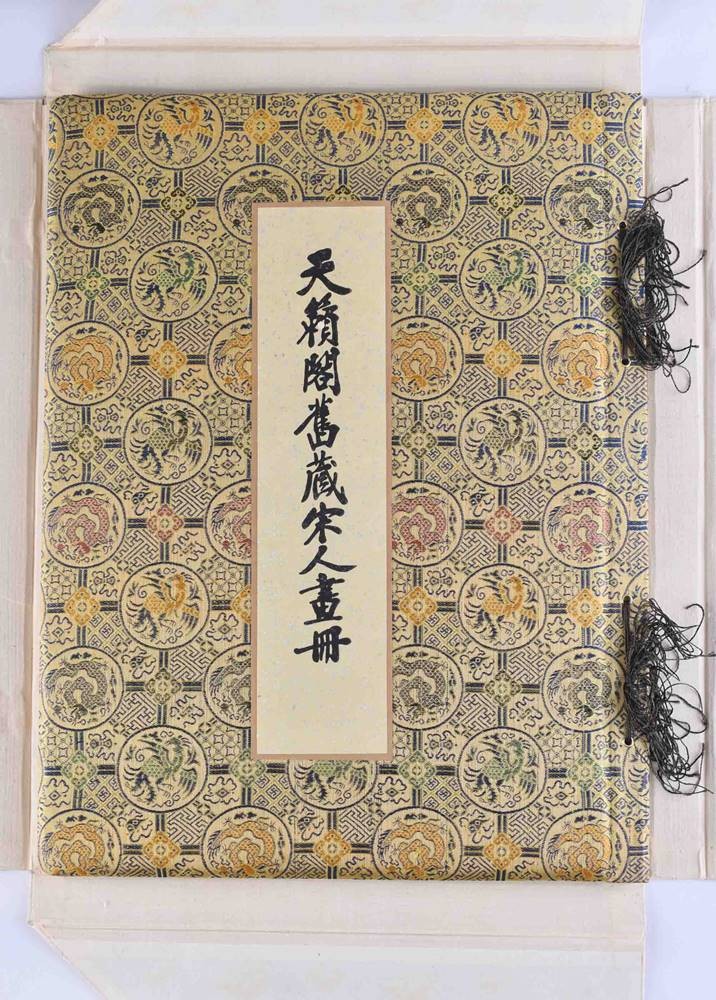 天籟閣舊藏宋人畫冊